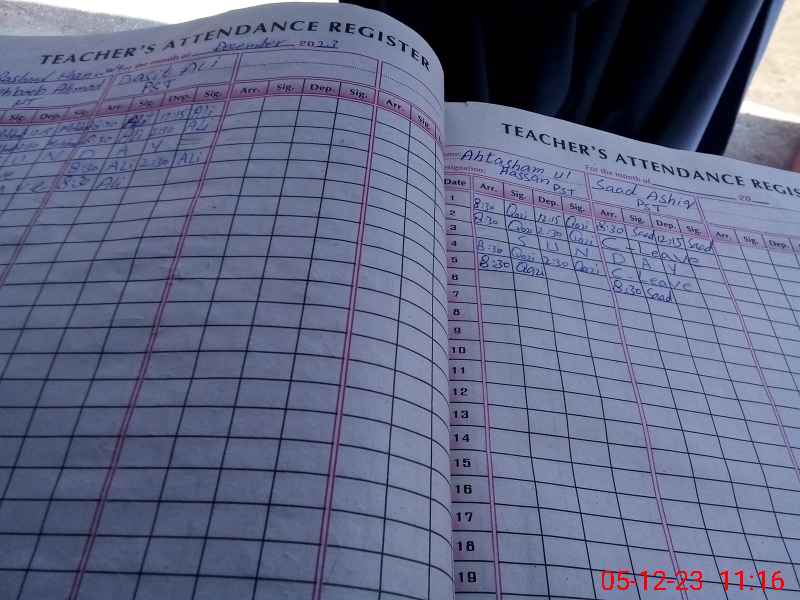 TEACHER'S ATTENDANCE REGISTER
For the month of December 2023
Basit ALi
PCT
Sig. Dep. Sig. Arr. Sig. Dep. Sig. Arr. Sig. Dep. Sig. Arr. Sig.
12:15 ALi
2:30 ALi
U N D A Y
8:30 ALi 2:30 ALi
8:30 ALi
TEACHER'S ATTENDANCE REGIS
For the month of 20
Ahtasham ul Hassan PST
Saad Ashiq
PST
Date Arr. Sig. Dep. Sig. Arr. Sig. Dep. Sig. Arr. Sig. Dep.
1 8:30 Qazi 12:15 Qazi 8:30 Saad 12:15 Saad
2 8:30 Qazi 2:30 Qazi C-Leave
3 S U N D A Y
4 8:30 Qazi 2:30 Qazi C-Leave
5 8:30 Qazi 8:30 Saad
6
7
8
9
10
11
12
13
14
15
16
17
18
19
05-12-23 11:16